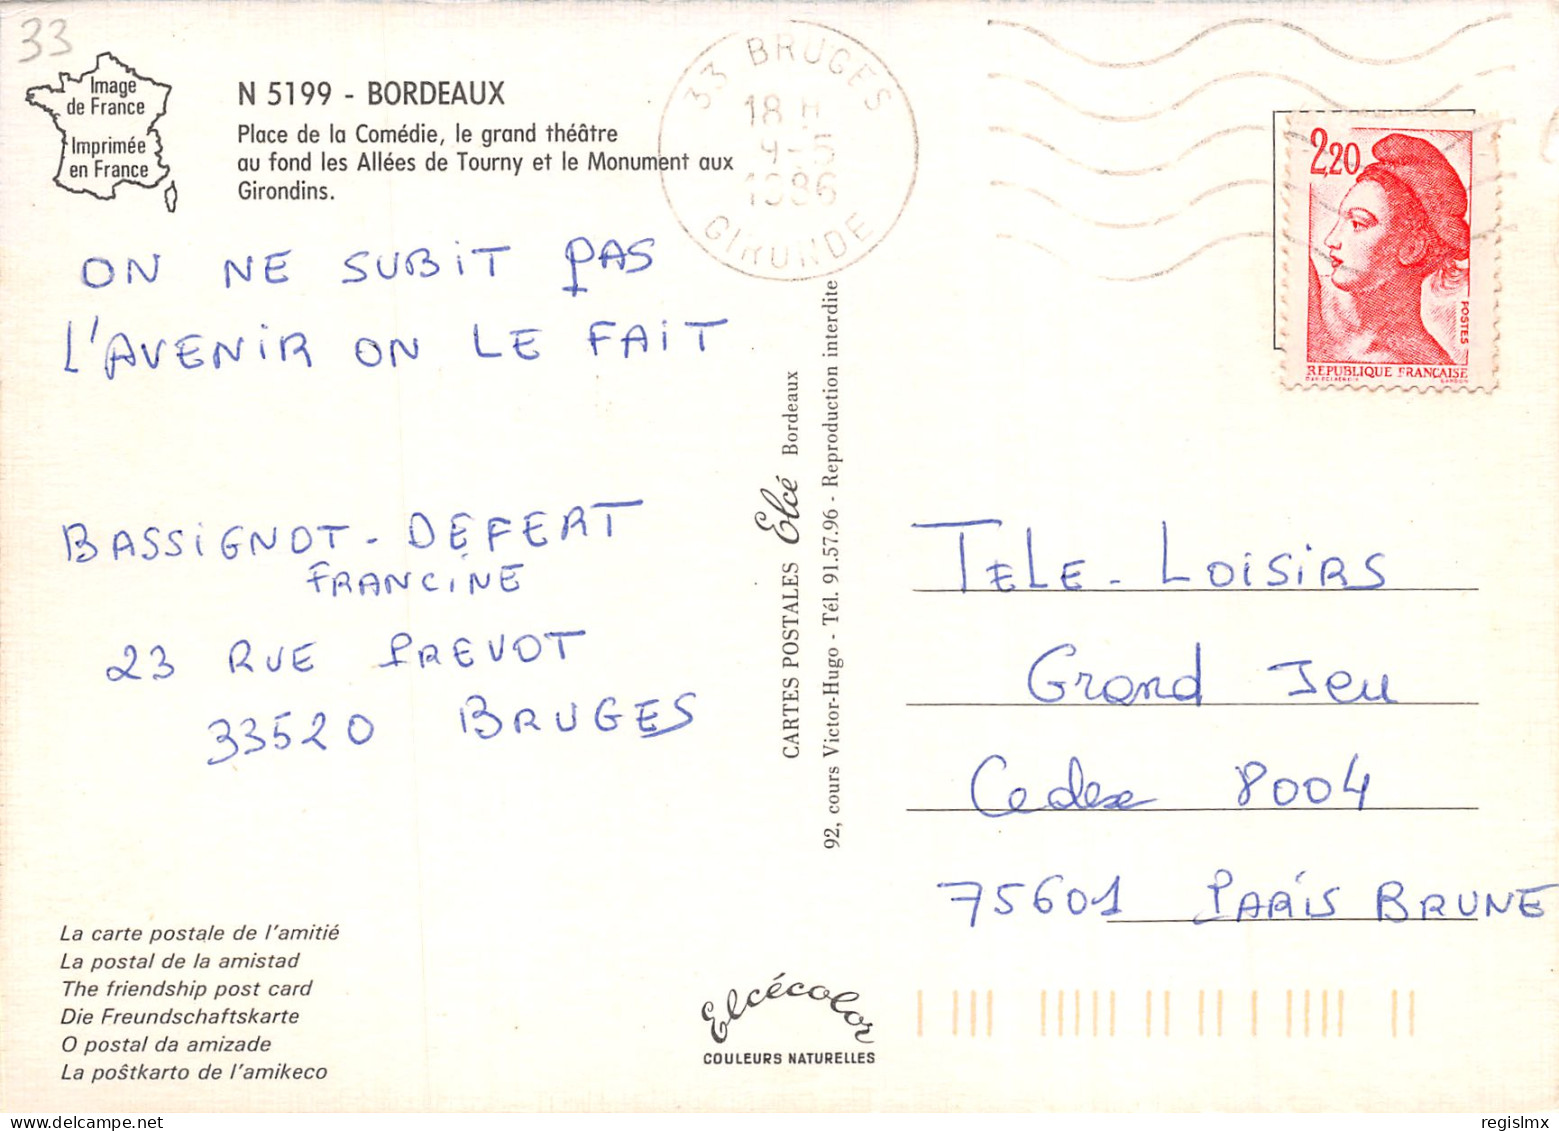 33
Image
de France
Imprimée
en France
N 5199 - BORDEAUX
Place de la Comédie, le grand théâtre
au fond les Allées de Tourny et le Monument aux
Girondins.
33 BRUGES
18 H
9-5
1986
GIRONDE
2,20
POSTES
REPUBLIQUE FRANÇAISE
ON NE SUBIT PAS
L'AVENIR ON LE FAIT
BASSIGNOT-DEFERT
FRANCINE
23 RUE PREVOT
33520 BRUGES
CARTES POSTALES Elcé Bordeaux
92, cours Victor-Hugo - Tél. 91.57.96 - Reproduction interdite
TELE-LOISIRS
Grand Jeu
Cedex 8004
75601 PARIS BRUNE
La carte postale de l'amitié
La postal de la amistad
The friendship post card
Die Freundschaftskarte
O postal da amizade
La poŝtkarto de l'amikeco
Elcécolor
COULEURS NATURELLES
regislmx